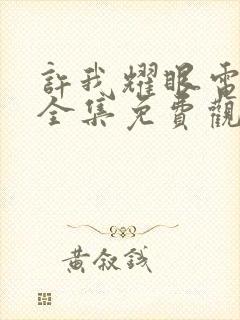 許我耀眼電
全集免費觀
黃叙錢